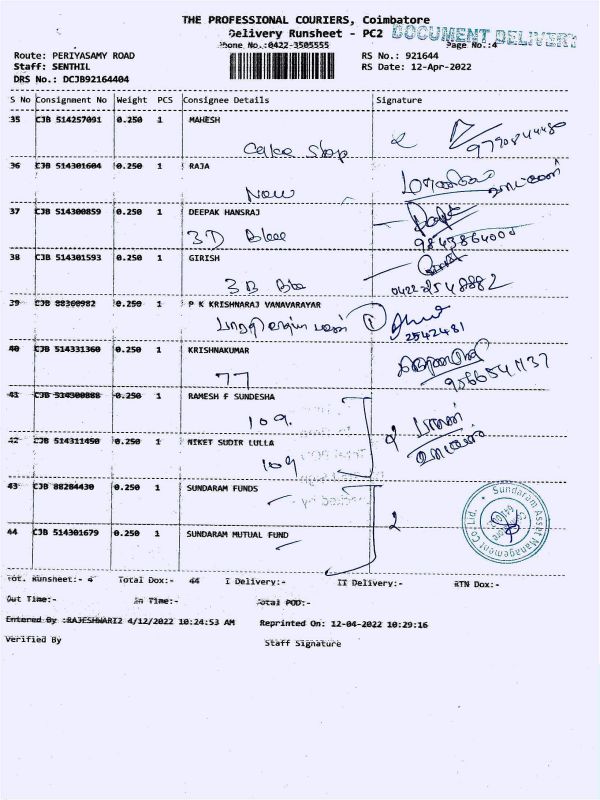 THE PROFESSIONAL COURIERS, Coimbatore
Delivery Runsheet - PC2 DOCUMENT DELIVERY
Phone No.:0422-3505555 Page No.:4
Route: PERIYASAMY ROAD RS No.: 921644
Staff: SENTHIL RS Date: 12-Apr-2022
DRS No.: DCJB92164404
S No Consignment No Weight PCS Consignee Details Signature
35 CJB 514257091 0.250 1 MAHESH
Cake Shop
36 CJB 514301604 0.250 1 RAJA
New
37 CJB 514300859 0.250 1 DEEPAK HANSRAJ
3D
38 CJB 514301593 0.250 1 GIRISH
3B 0422 2548882
39 CJB 88360982 0.250 1 P K KRISHNARAJ VANAVARAYAR
2542481
40 CJB 514331360 0.250 1 KRISHNAKUMAR
77 9566541137
41 CJB 514300888 0.250 1 RAMESH F SUNDESHA
109.
42 CJB 514311450 0.250 1 NIKET SUDIR LULLA
109
43 CJB 88284430 0.250 1 SUNDARAM FUNDS
2
Sundaram Asset Management Co. Ltd.
44 CJB 514301679 0.250 1 SUNDARAM MUTUAL FUND
Tot. Runsheet:- 4 Total Dox:- 44 I Delivery:- II Delivery:- RTN Dox:-
Out Time:- In Time:- Total POD:-
Entered By :RAJESHWARI2 4/12/2022 10:24:53 AM Reprinted On: 12-04-2022 10:29:16
Verified By Staff Signature